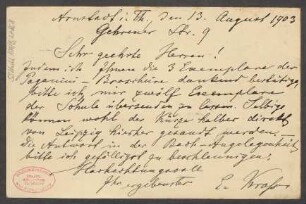 Arnstadt i. Th., den 13. August 1903
Gehrener Str. 9
Sehr geehrte Herren!
Indem ich Ihnen die 3 Exemplare der
Paganini-Broschüre dankend bestätige,
bitte ich mir zwölf Exemplare
der Schule übersenden zu lassen. Selbige
können wohl der Kürze halber direkt
von Leipzig hierher gesandt werden.
Die Antwort in der Bach-Angelegenheit
bitte ich gefälligst zu beschleunigen.
Hochachtungsvoll
Ihr ergebenster